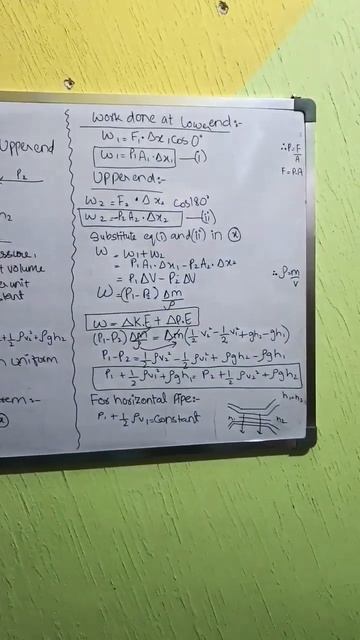 Upper end
P2
n2
essure,
t volume
unit
stant
+½ρv₂²+ρgh2
n uniform
rem:-
Work done at Lower end:-
W1 = F1·Δx1 cos0°
W1 = P1A1·Δx1 —(i)
∴P=F/A
F=P.A
Upper end:-
W2 = F2·Δx2 cos180°
W2 = -P2A2·Δx2 —(ii)
Substitute eq(i) and (ii) in (*)
W = W1 + W2
= P1A1·Δx1 - P2A2·Δx2
= P1ΔV - P2ΔV
W = (P1-P2) Δm/ρ
∴ρ=m/v
W = ΔK.E + ΔP.E
(P1-P2) Δm/ρ = Δm(½v₂² - ½v₁² + gh2 - gh1)
P1-P2 = ½ρv₂² - ½ρv₁² + ρgh2 - ρgh1
P1 + ½ρv₁² + ρgh1 = P2 + ½ρv₂² + ρgh2
For horizontal Pipe:-
h1=h2
P1 + ½ρv1 = Constant
h1
h2